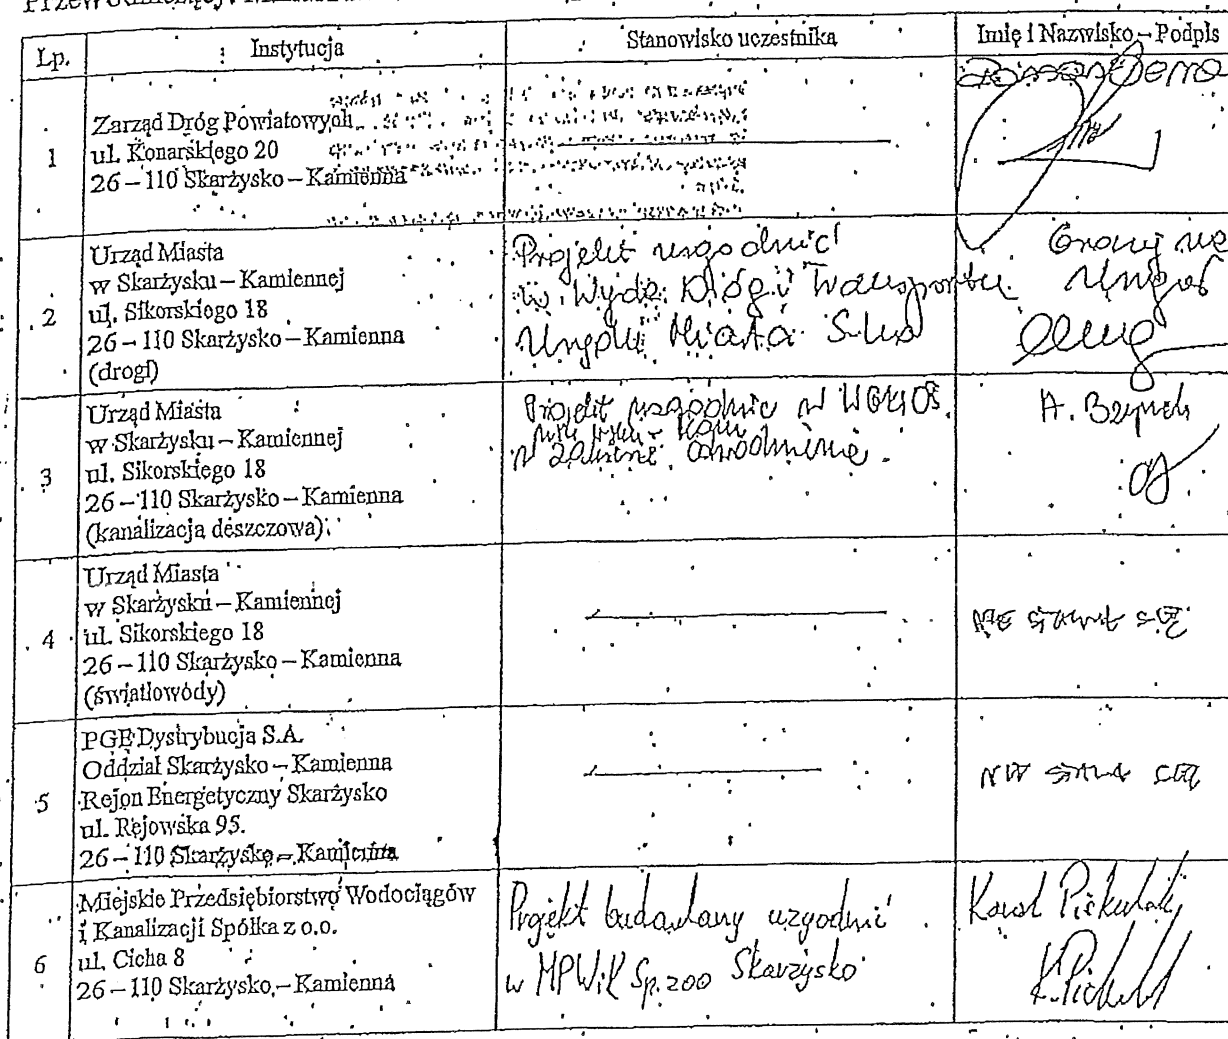 Lp.
Instytucja
Stanowisko uczestnika
Imię i Nazwisko – Podpis
1
Zarząd Dróg Powiatowych
ul. Konarskiego 20
26 – 110 Skarżysko – Kamienna
2
Urząd Miasta
w Skarżysku – Kamiennej
ul. Sikorskiego 18
26 – 110 Skarżysko – Kamienna
(drogi)
Projekt uzgodnić
w Wydz. Dróg i Transportu
Urzędu Miasta
3
Urząd Miasta
w Skarżysku – Kamiennej
ul. Sikorskiego 18
26 – 110 Skarżysko – Kamienna
(kanalizacja deszczowa)
Projekt uzgodnić w
w zakresie odwodnienia.
A.
4
Urząd Miasta
w Skarżysku – Kamiennej
ul. Sikorskiego 18
26 – 110 Skarżysko – Kamienna
(światłowody)
NIE STAWIŁ SIĘ
5
PGE Dystrybucja S.A.
Oddział Skarżysko – Kamienna
Rejon Energetyczny Skarżysko
ul. Rejowska 95.
26 – 110 Skarżysko – Kamienna
NIE STAWIŁ SIĘ
6
Miejskie Przedsiębiorstwo Wodociągów
i Kanalizacji Spółka z o.o.
ul. Cicha 8
26 – 110 Skarżysko – Kamienna
Projekt budowlany uzgodnić
w MPWiK Sp. zoo Skarżysko
Karol